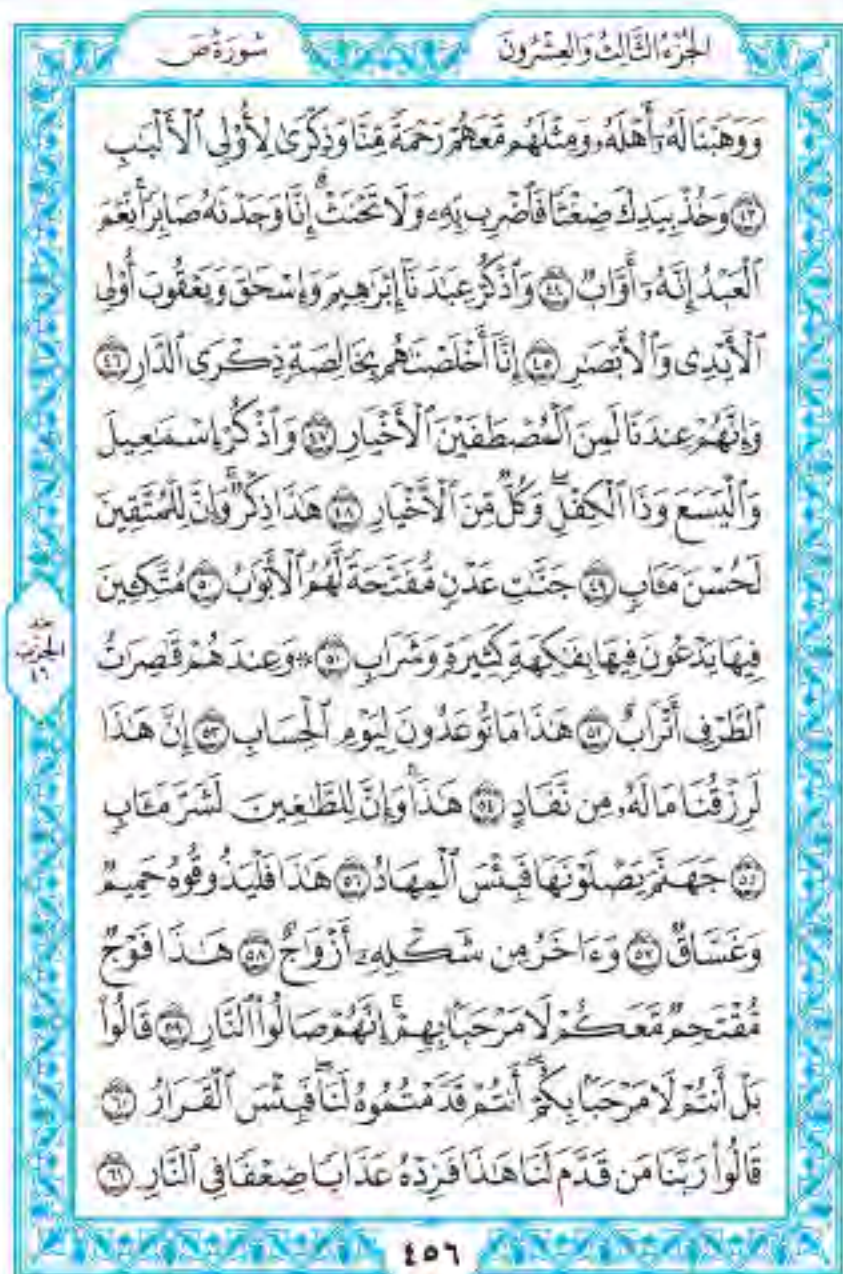 الجزء الثالث والعشرون
سورة ص
وَوَهَبْنَا لَهُۥٓ أَهْلَهُۥ وَمِثْلَهُم مَّعَهُمْ رَحْمَةً مِّنَّا وَذِكْرَىٰ لِأُو۟لِى ٱلْأَلْبَٰبِ
٤٣ وَخُذْ بِيَدِكَ ضِغْثًا فَٱضْرِب بِّهِۦ وَلَا تَحْنَثْ ۗ إِنَّا وَجَدْنَٰهُ صَابِرًا ۚ نِّعْمَ
ٱلْعَبْدُ ۖ إِنَّهُۥٓ أَوَّابٌ ٤٤ وَٱذْكُرْ عِبَٰدَنَآ إِبْرَٰهِيمَ وَإِسْحَٰقَ وَيَعْقُوبَ أُو۟لِى
ٱلْأَيْدِى وَٱلْأَبْصَٰرِ ٤٥ إِنَّآ أَخْلَصْنَٰهُم بِخَالِصَةٍ ذِكْرَى ٱلدَّارِ ٤٦
وَإِنَّهُمْ عِندَنَا لَمِنَ ٱلْمُصْطَفَيْنَ ٱلْأَخْيَارِ ٤٧ وَٱذْكُرْ إِسْمَٰعِيلَ
وَٱلْيَسَعَ وَذَا ٱلْكِفْلِ ۖ وَكُلٌّ مِّنَ ٱلْأَخْيَارِ ٤٨ هَٰذَا ذِكْرٌ ۚ وَإِنَّ لِلْمُتَّقِينَ
لَحُسْنَ مَـَٔابٍ ٤٩ جَنَّٰتِ عَدْنٍ مُّفَتَّحَةً لَّهُمُ ٱلْأَبْوَٰبُ ٥٠ مُتَّكِـِٔينَ
فِيهَا يَدْعُونَ فِيهَا بِفَٰكِهَةٍ كَثِيرَةٍ وَشَرَابٍ ٥١ ۞ وَعِندَهُمْ قَٰصِرَٰتُ
ٱلطَّرْفِ أَتْرَابٌ ٥٢ هَٰذَا مَا تُوعَدُونَ لِيَوْمِ ٱلْحِسَابِ ٥٣ إِنَّ هَٰذَا
لَرِزْقُنَا مَا لَهُۥ مِن نَّفَادٍ ٥٤ هَٰذَا ۚ وَإِنَّ لِلطَّٰغِينَ لَشَرَّ مَـَٔابٍ
٥٥ جَهَنَّمَ يَصْلَوْنَهَا فَبِئْسَ ٱلْمِهَادُ ٥٦ هَٰذَا فَلْيَذُوقُوهُ حَمِيمٌ
وَغَسَّاقٌ ٥٧ وَءَاخَرُ مِن شَكْلِهِۦٓ أَزْوَٰجٌ ٥٨ هَٰذَا فَوْجٌ
مُّقْتَحِمٌ مَّعَكُمْ ۖ لَا مَرْحَبًۢا بِهِمْ ۚ إِنَّهُمْ صَالُوا۟ ٱلنَّارِ ٥٩ قَالُوا۟
بَلْ أَنتُمْ لَا مَرْحَبًۢا بِكُمْ ۖ أَنتُمْ قَدَّمْتُمُوهُ لَنَا ۖ فَبِئْسَ ٱلْقَرَارُ ٦٠
قَالُوا۟ رَبَّنَا مَن قَدَّمَ لَنَا هَٰذَا فَزِدْهُ عَذَابًا ضِعْفًا فِى ٱلنَّارِ ٦١
الحزب
٤٦
٤٥٦